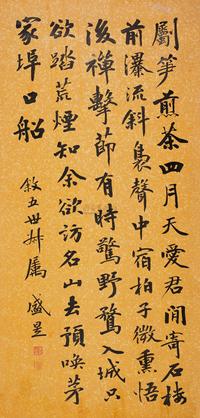 劚笋煎茶四月天愛君閒寄石樓
前瀑流斜裊聲中宿柏子微熏悟
後禪擊節有時驚野鶩入城只
欲踏荒煙知余欲訪名山去預喚茅
家埠口船
叙五世叔屬 盛昱